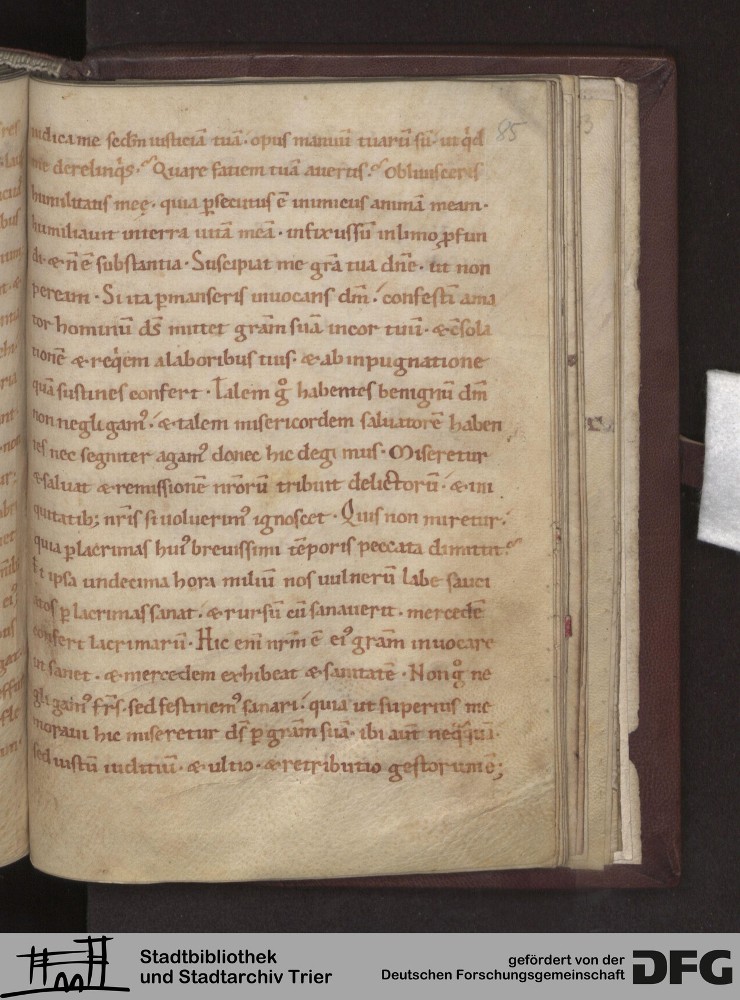 85
3
iudica me scd̄m iusticiā tuā· opus manuū tuarū sū· ut q̇d
me derelinq̇s· Quare faciem tuā auertis· Obliuisceris
humilitatis meę· quia p̱secutus ē inimicus animā meam·
humiliauit interra uitā meā· infixussū inlimo ꝓfun
di· & n̄ ē substantia· Suscipiat me gr̄a tua dn̄e· ut non
peream· Si ita p̱manseris inuocans dm̄· confestī ama
tor hominū ds̄ mittet gram̄ suā incor tuū· & c̄sola
tionē & req̇em alaboribus tuis· & ab inpugnatione
quā sustines confert· Talem g̊ habentes benignū dm̄
non negligam᾿· & talem misericordem saluatorē haben
tes nec segniter agam᾿ donec hic degi mus· Miseretur
& saluat & remissionē nr̄orū tribuit delictorū· & ini
quitatib; nr̄is si uoluerim᾿ ignoscet· Quis non miretur·
quia p̱ lacrimas hui᾿ breuissimi tēporis peccata dimittit·
Et ipsa undecima hora miliū nos uulnerū labe sauci
atos p̱ lacrimas sanat· & rursū cū sanauerit· mercedē
confert lacrimarū· Hic eni nr̄m ē ei᾿ gram̄ inuocare
ut sanet· & mercedem exhibeat & sanitatē· Non g̊ ne
gligam᾿ fr̄s· sed festinem᾿ sanari· quia ut superius me
moraui hic miseretur ds̄ p̱ gram̄ suā· ibi aūt neq̇quā·
sed iustū iuditiū· & ultio· & retributio gestorum ē;
Stadtbibliothek
und Stadtarchiv Trier
gefördert von der
Deutschen Forschungsgemeinschaft
DFG